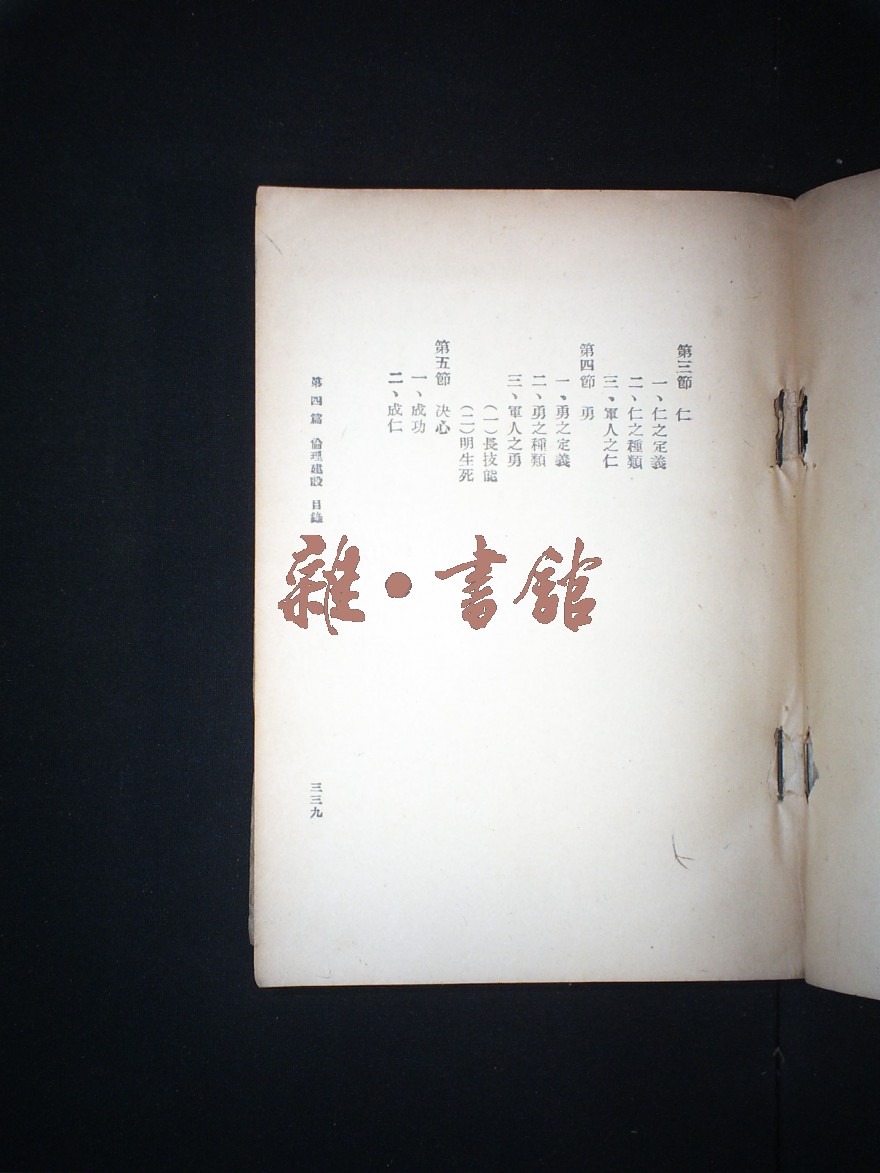 第三節　仁
一、仁之定義
二、仁之種類
三、軍人之仁
第四節　勇
一、勇之定義
二、勇之種類
三、軍人之勇
（一）長技能
（二）明生死
第五節　決心
一、成功
二、成仁
第四篇　倫理建設　目錄
三三九
雜・書館